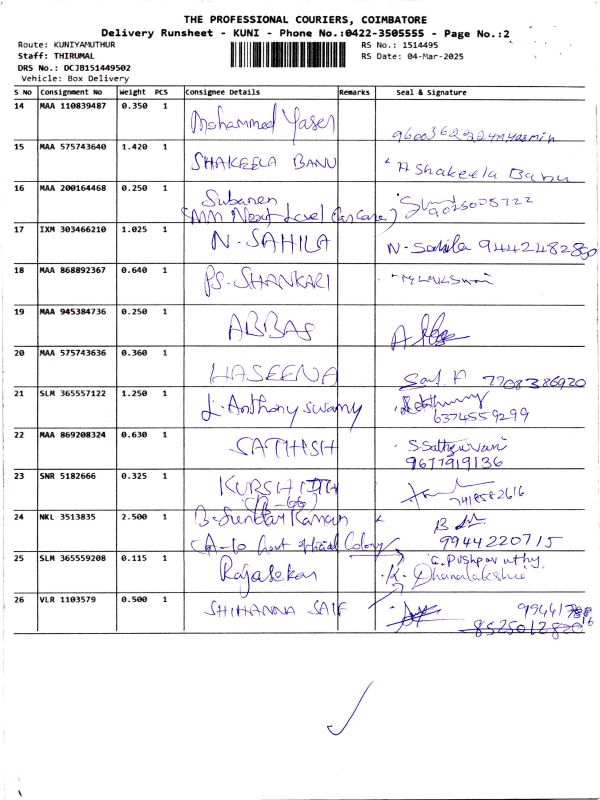 THE PROFESSIONAL COURIERS, COIMBATORE
Delivery Runsheet - KUNI - Phone No.:0422-3505555 - Page No.:2
Route: KUNIYAMUTHUR RS No.: 1514495
Staff: THIRUMAL RS Date: 04-Mar-2025
DRS No.: DCJB151449502
Vehicle: Box Delivery
S No Consignment No Weight PCS Consignee Details Remarks Seal & Signature
14 MAA 110839487 0.350 1 Mohammed Yaser
15 MAA 575743640 1.420 1 SHAKEELA BANU A Shakeela Banu
16 MAA 200164468 0.250 1 Subanen
(MM Next Level Car Care) 9025008722
17 IXM 303466210 1.025 1 N. SAHILA N. Sahila 9442482860
18 MAA 868892367 0.640 1 PS. SHANKARI
19 MAA 945384736 0.250 1 ABBAS
20 MAA 575743636 0.360 1 HASEENA 7708386920
21 SLM 365557122 1.250 1 L. Anthony Swamy
6374559299
22 MAA 869208324 0.630 1 SATHISH
9677919136
23 SNR 5182666 0.325 1 KURSHITH
(B-66) 7418582616
24 NKL 3513835 2.500 1 B. Sundar Raman B
(A-10 Govt official Colony) 9944220715
25 SLM 365559208 0.115 1 Rajasekar C. Pushpavathy
K. Dhanalakshmi
26 VLR 1103579 0.500 1 SHIHANNA SAIF